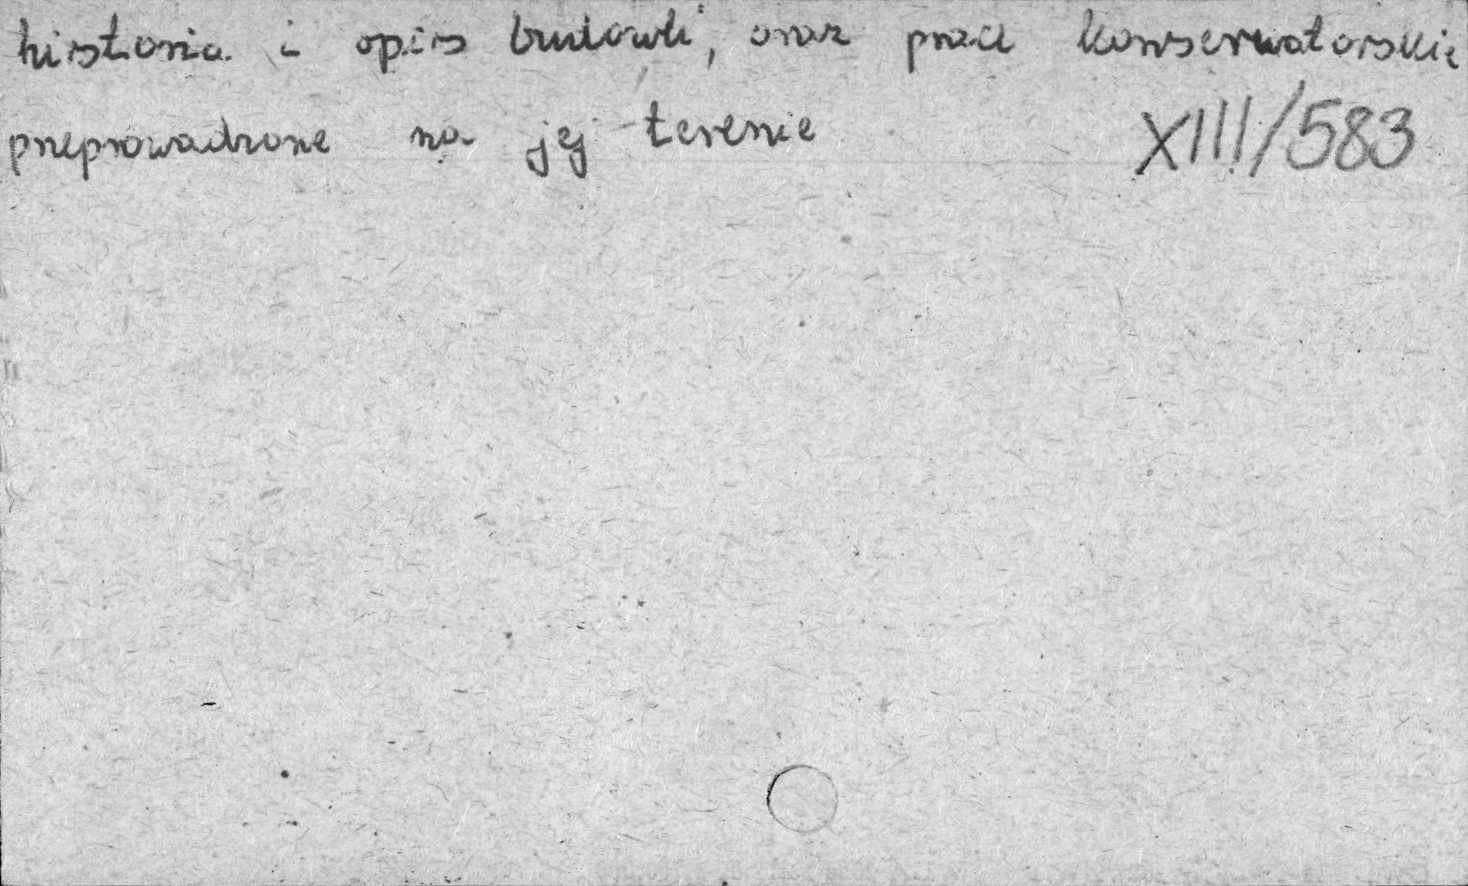 historia i opis budowli, oraz prace konserwatorskie
przeprowadzone na jej terenie
XIII/583